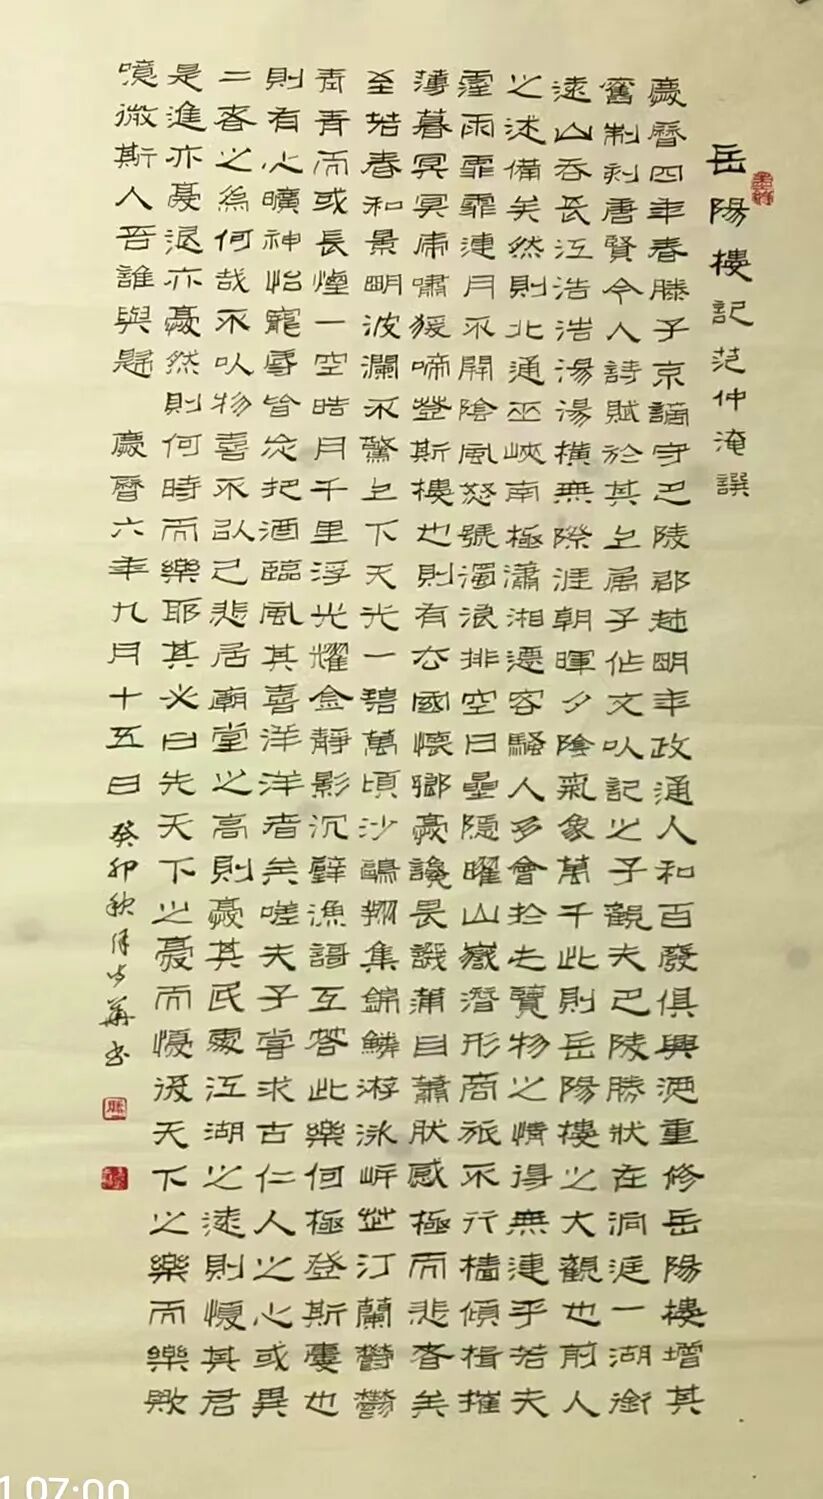 岳陽樓記 范仲淹譔
慶曆四年春滕子京謫守巴陵郡越明年政通人和百廢俱興迺重修岳陽樓增其
舊制刻唐賢今人詩賦於其上屬予作文以記之予觀夫巴陵勝狀在洞庭一湖銜
遠山吞長江浩浩湯湯橫無際涯朝暉夕陰氣象萬千此則岳陽樓之大觀也前人
之述備矣然則北通巫峽南極瀟湘遷客騷人多會於此覽物之情得無連乎若夫
霪雨霏霏連月不開陰風怒號濁浪排空日星隱曜山嶽潛形商旅不行檣傾楫摧
薄暮冥冥虎嘯猨啼登斯樓也則有去國懷鄉憂讒畏譏滿目蕭然感極而悲者矣
至若春和景明波瀾不驚上下天光一碧萬頃沙鷗翔集錦鱗游泳岸芷汀蘭鬱鬱
青青而或長煙一空皓月千里浮光耀金靜影沉璧漁謌互答此樂何極登斯樓也
則有心曠神怡寵辱皆忘把酒臨風其喜洋洋者矣嗟夫予嘗求古仁人之心或異
二者之為何哉不以物喜不以己悲居廟堂之高則憂其民處江湖之遠則憂其君
是進亦憂退亦憂然則何時而樂耶其必曰先天下之憂而憂後天下之樂而樂歟
噫微斯人吾誰與歸 慶曆六年九月十五日 癸卯秋 華書
1 07:00